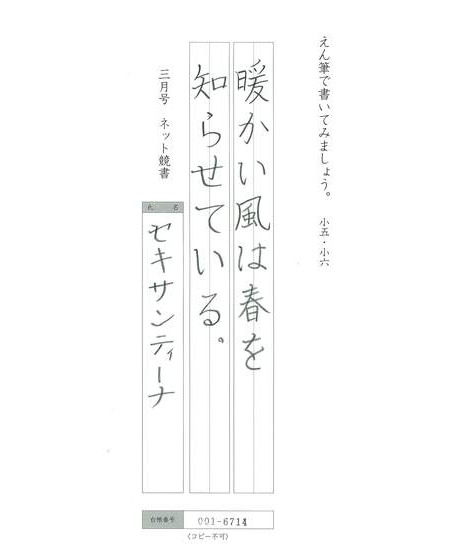 えん筆で書いてみましょう。 小五・小六
暖かい風は春を
知らせている。
三月号 ネット競書
氏 名
セキサンティーナ
台帳番号 001-6714
(コピー不可)